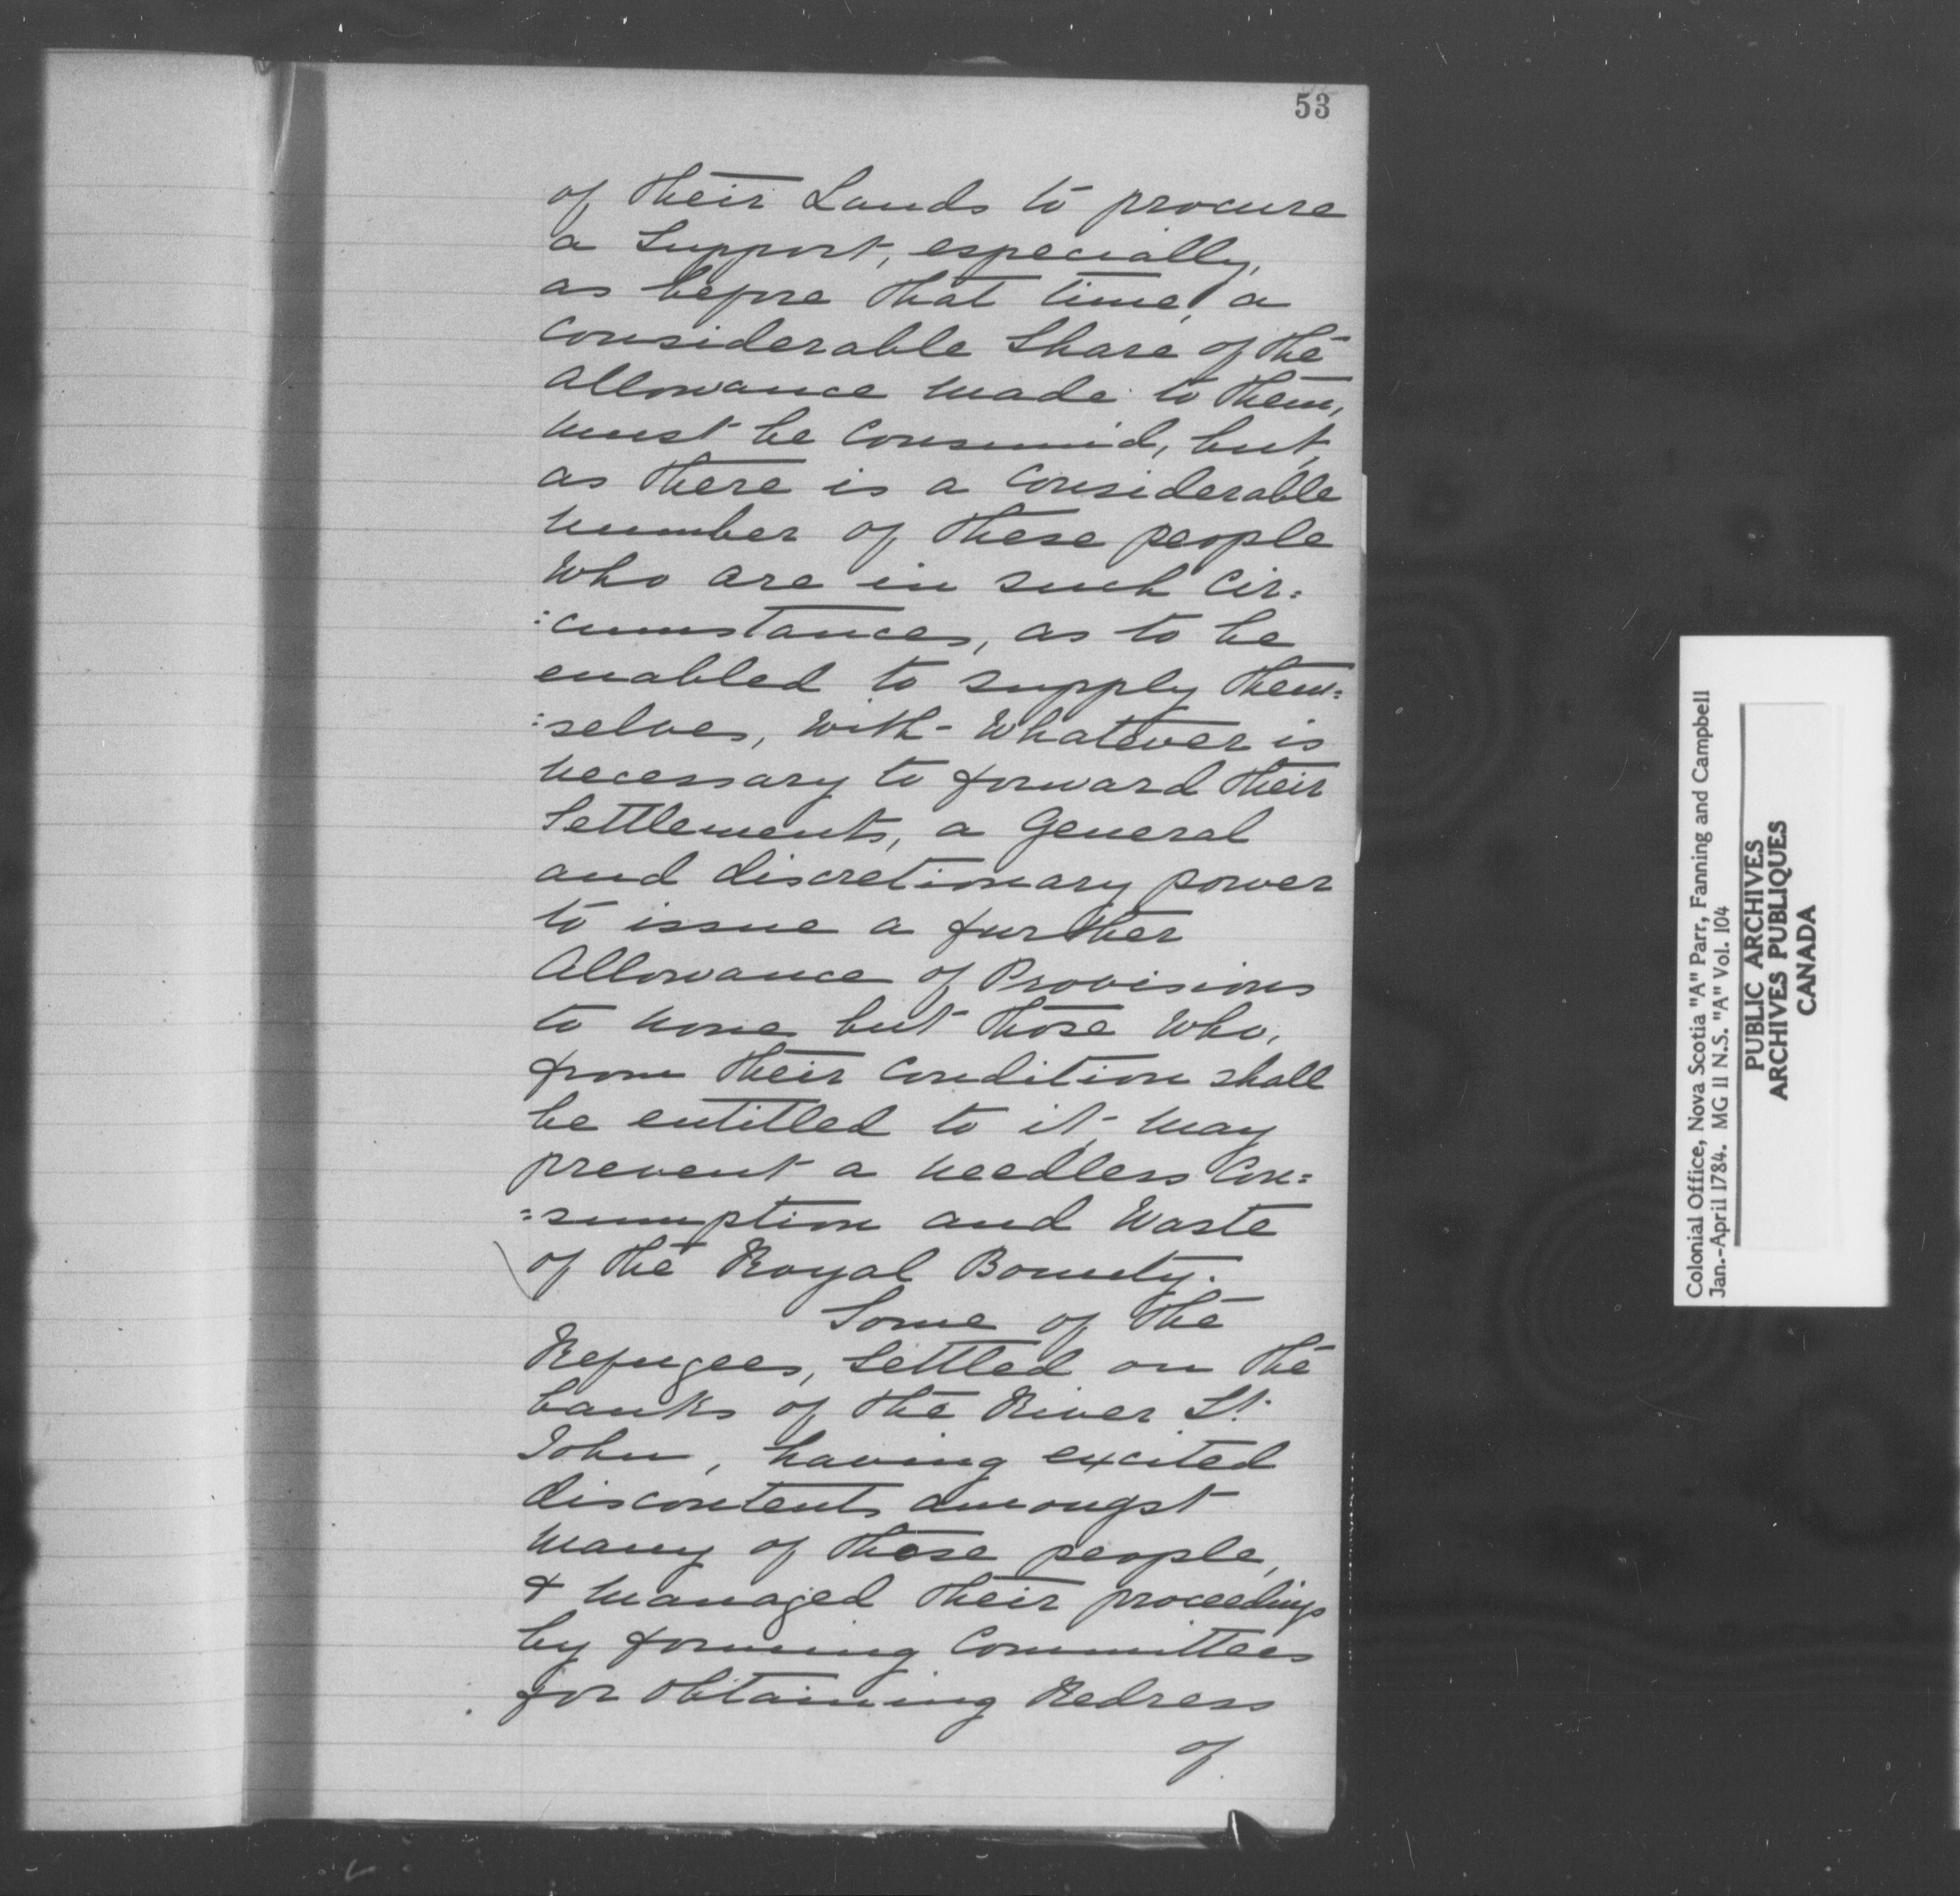 53
of their Lands to procure
a Support, especially,
as before that time, a
considerable Share of the
allowance made to them,
must be consumed, but,
as there is a considerable
number of these people
Who are in such Cir:
:cumstances, as to be
enabled to supply them:
:selves, With Whatever is
necessary to forward their
Settlements, a General
and discretionary power
to issue a further
Allowance of Provisions
to none but those Who,
from their Condition shall
be entitled to it, may
prevent a needless Con:
:sumption and Waste
of the Royal Bounty.
Some of the
Refugees, Settled on the
banks of the River St.
John, having excited
discontents amongst
many of those people,
& managed their proceedings
by forming Committees
for obtaining Redress
of
Colonial Office, Nova Scotia "A" Parr, Fanning and Campbell
Jan.-April 1784. MG 11 N.S. "A" Vol. 104
PUBLIC ARCHIVES
ARCHIVES PUBLIQUES
CANADA